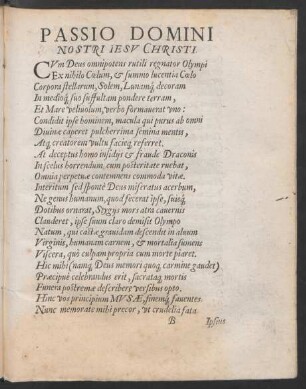 PASSIO DOMINI
NOSTRI IESV CHRISTI.
CVm Deus omnipotens rutili regnator Olympi
Ex nihilo Cœlum, & summo lucentia Cœlo
Corpora stellarum, Solem, Lunamq́; decoram
In medioq́; suo suffultam pondere terram,
Et Mare veliuolum, verbo formauerat vno:
Condidit ipse hominem, macula qui purus ab omni
Diuinæ caperet pulcherrima semina mentis,
Atq; creatorem vultu facieq́; referret.
At deceptus homo insidijs & fraude Draconis
In scelus horrendum, cum posteritate ruebat,
Omnia perpetuæ contemnens commoda vitæ.
Interitum sed sponte Deus miseratus acerbum,
Ne genus humanum, quod fecerat ipse, suisq́;
Dotibus ornarat, Stygijs mors atra cauernis
Clauderet, ipse suum claro demisit Olympo
Natum, qui castæ grandam descendit in aluum
Virginis, humanam carnem, & mortalia sumens
Viscera, quò culpam propria cum morte piaret.
Hic mihi (namq́; Deus memori quoq; carmine gaudet)
Præcipuè celebrandus erit, sacrataq́; mortis
Funera postremæ describere versibus opto.
Hinc vos principium MVSÆ, finemq́; fauentes
Nunc memorate mihi precor, vt crudelia fata
B Ipsius